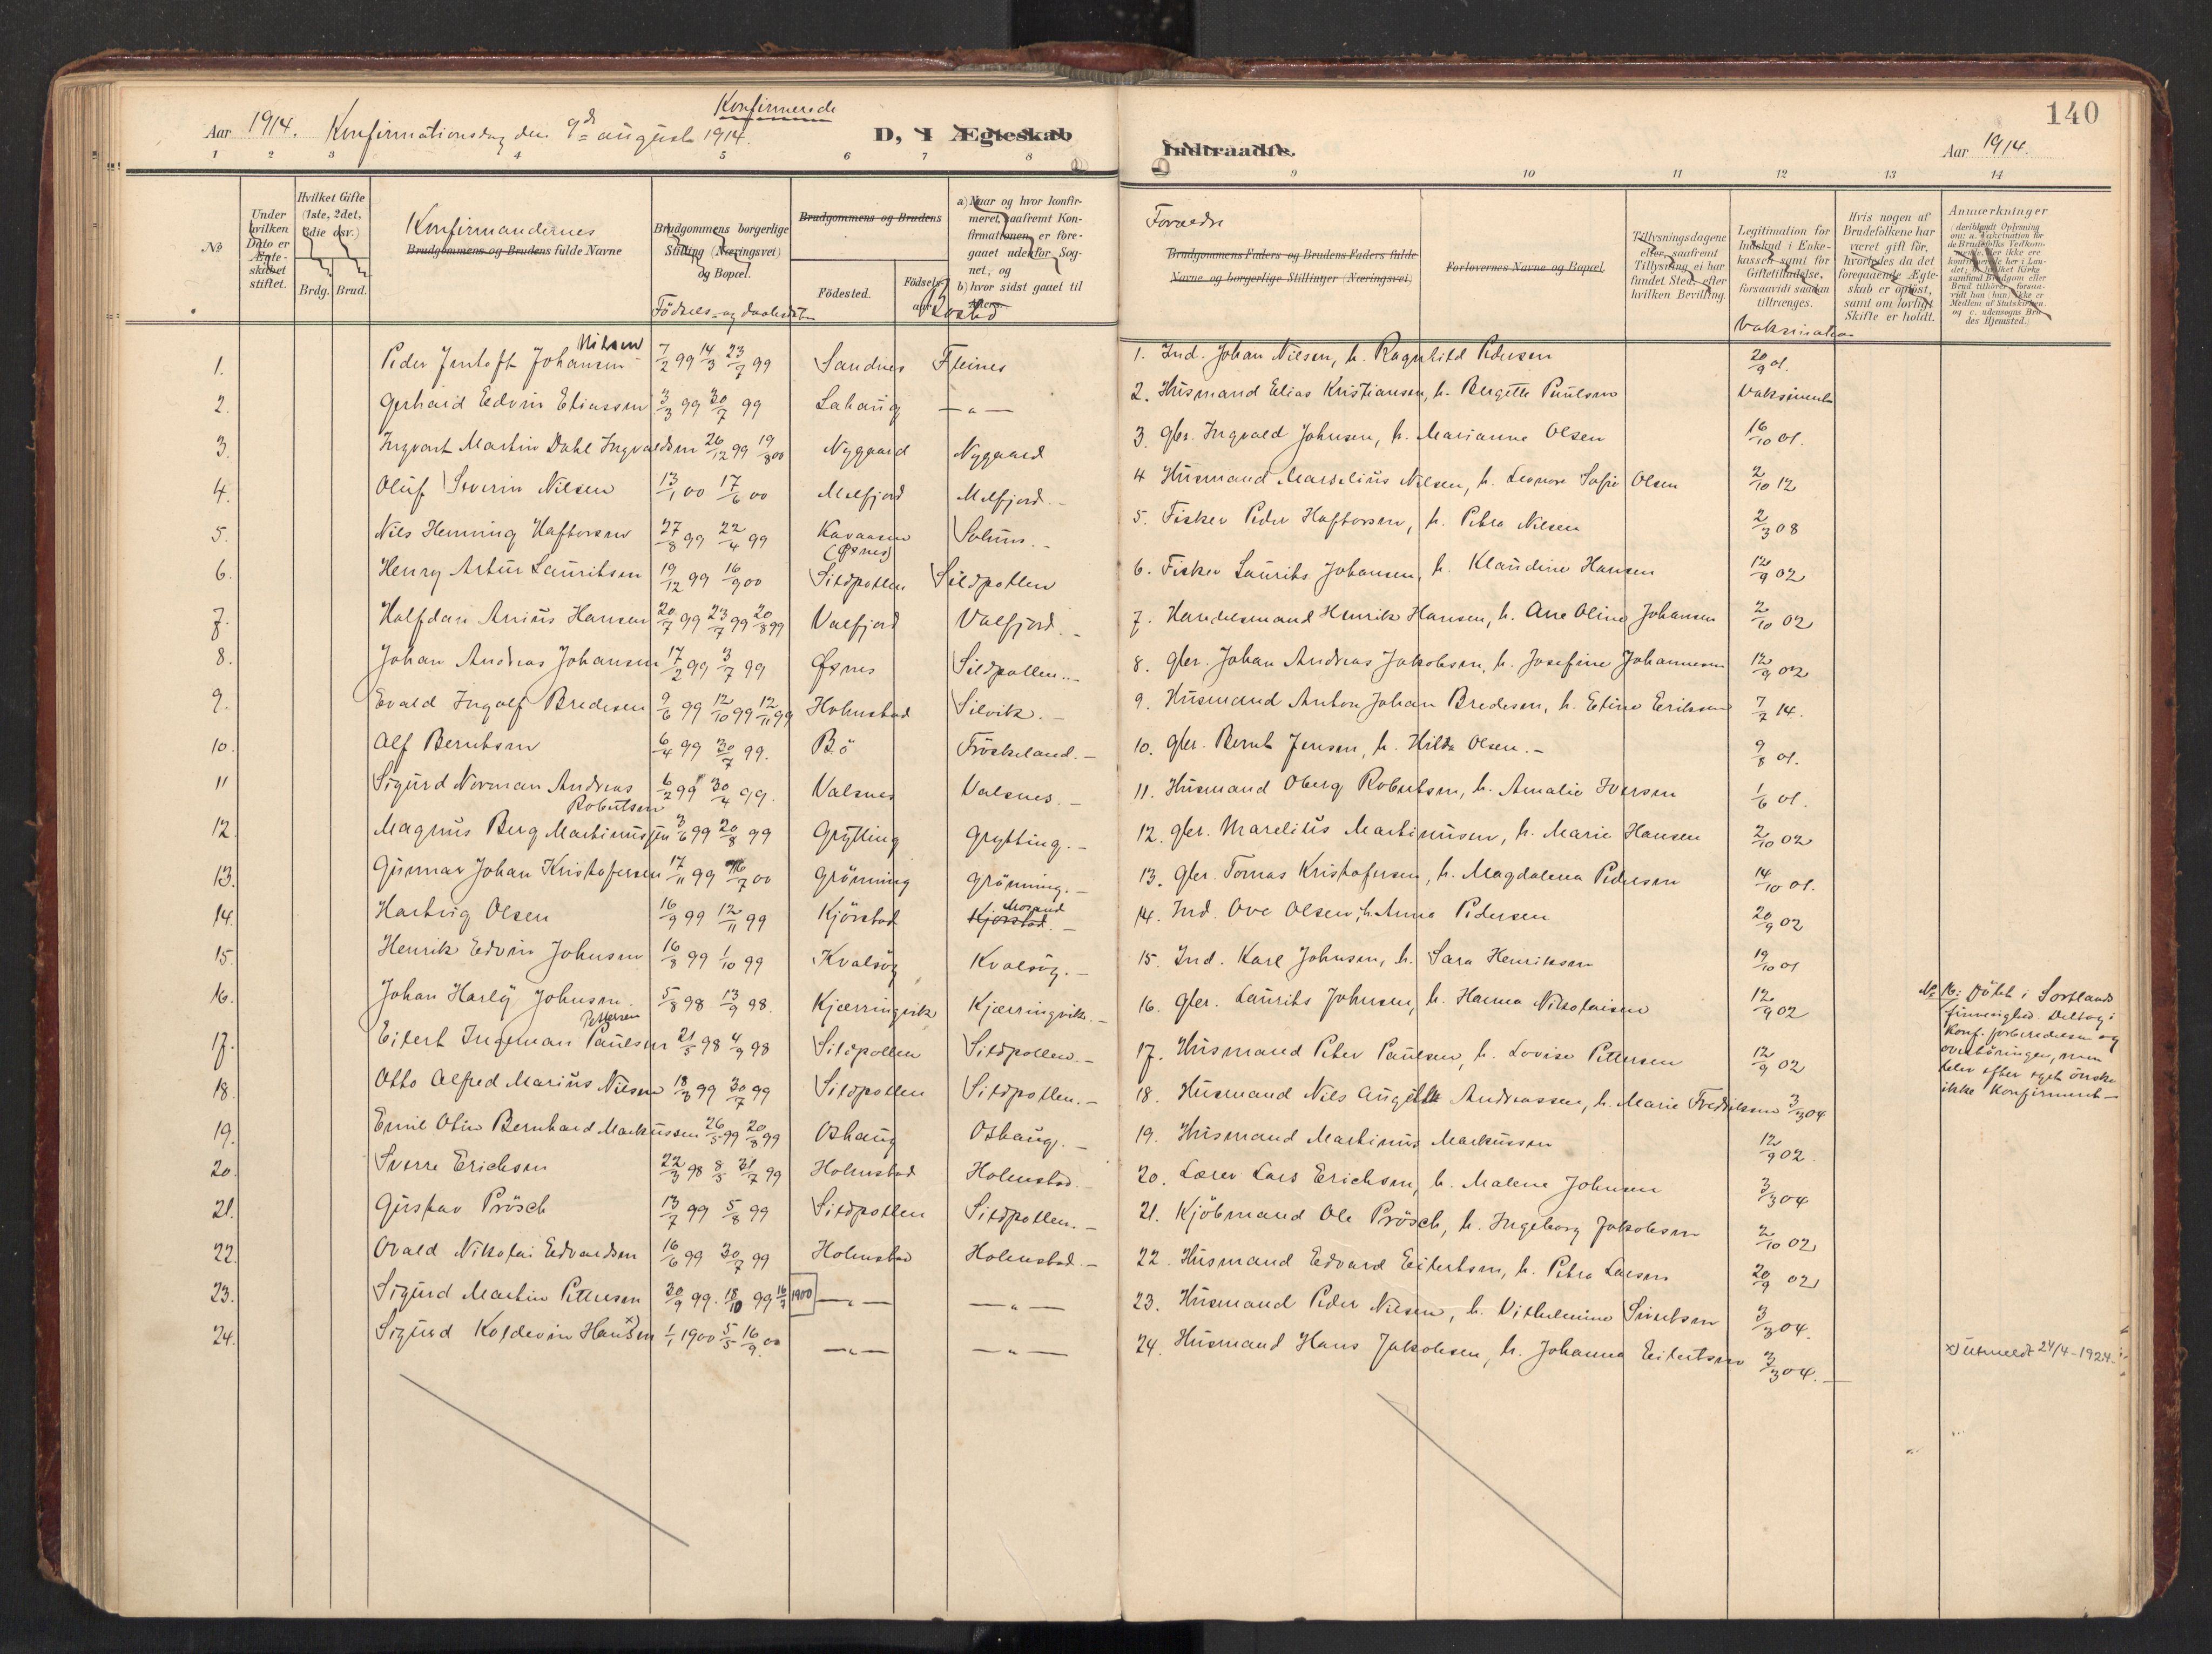 140
Aar 1914. Konfirmationsdag den 9de august 1914. Konfirmerede D, I Ægteskab
Indtraadte. Aar 1914.
1 2 3 4 5 6 7 8
9 10 11 12 13 14
No
Under hvilken Dato er Ægteskabet stiftet.
Hvilket Gifte (1ste, 2det, 3die osv.)
Brdg. Brud.
Konfirmandernes
Brudgommens og Brudens fulde Navne
Brudgommens borgerlige Stilling (Næringsvei) og Bopæl.
Fødsels- og daabsdato
Brudgommens og Brudens
Fødested.
Fødsels-
Bosted
a) Naar og hvor konfirmeret, saafremt Konfirmationen er foregaaet udenfor Sognet, og
b) hvor sidst gaaet til Alters.
Forældre
Brudgommens Faders og Brudens Faders fulde Navne og borgerlige Stillinger (Næringsvei)
Forlovernes Navne og Bopæl.
Tillysningsdagene eller, saafremt Tillysning ei har fundet Sted, efter hvilken Bevilling.
Legitimation for Indskud i Enkekassen samt for Giftetilladelse, forsaavidt saadan tiltrænges.
Vaksination
Hvis nogen af Brudefolkene har været gift før, hvorledes da det foregaaende Ægteskab er opløst, samt om lovligt Skifte er holdt.
Anmærkninger
1. Peder Jentoft Johansen Nilsen 7/2 99 14/3 23/7 99 Sandnes Fleines
2. Gerhard Edvin Eliassen 3/3 99 30/7 99 Lahaug —"—
3. Ingvart Martin Dahl Ingvaldsen 26/12 99 19/8 00 Nygaard Nygaard
4. Oluf Severin Nilsen 13/1 00 17/6 00 Melfjord Melfjord.-
5. Nils Henning Haftorsen 27/8 99 22/4 99 Kavaasen (Øsnes) Solums.-
6. Henry Artur Lauritsen 19/12 99 16/9 00 Sildpollen Sildpollen
7. Halfdan Arius Hansen 20/7 99 23/7 99 20/8 99 Valfjord Valfjord.-
8. Johan Andreas Johansen 17/2 99 3/7 99 Øsnes Sildpollen.-
9. Evald Ingolf Bredesen 9/6 99 12/10 99 12/11 99 Holmstad Silvik.-
10. Alf Berntsen 6/4 99 30/7 99. Bö Fröskeland.-
11 Sigurd Norman Andreas Robertsen 6/2 99 30/4 99. Valsnes Valsnes.-
12. Magnus Berg Martinussen 3/6 99 20/8 99 Grytting Grytting.-
13. Gunnar Johan Kristofersen 17/11 99 16/7 00 Grönning Grönning.-
14. Hartvig Olsen 16/9 99 12/11 99 Kjörstad Kjörstad.- Morand
15. Henrik Edvin Johnsen 16/8 99 1/10 99 Kvalsög Kvalsög.-
16. Johan Harly Johnsen. 5/8 98 13/9 98. Kjærringvik Kjærringvik.-
17. Eilert Ingeman Paulsen Pettersen 21/5 98 4/9 98 Sildpollen Sildpollen.-
18. Otto Alfred Marius Nilsen 18/3 99 30/7 99 Sildpollen Sildpollen.-
19. Emil Olin Bernhard Markussen 26/5 99 20/8 99 Oshaug Oshaug.-
20. Sverre Erichsen 22/3 98 8/5 31/7 99 Holmstad Holmstad.-
21. Gustav Prösch 13/7 99 5/8 99 Sildpollen Sildpollen.-
22. Ovald Nikolai Edvardsen 16/6 99 30/7 99 Holmstad Holmstad.-
23. Sigurd Martin Pettersen 30/9 99. 18/10 99 16/9 1900 —"— —"—
24. Sigurd Koldevin Hansen x) 1/1 1900 5/5 16/9 00 —"— —"—
1. Ind. Johan Nilsen, h. Ragnhild Pedersen 20/9 01.
2. Husmand Elias Kristiansen, h. Bergitte Paulsen Vaksinert
3. Gbr. Ingvald Johnsen, h. Marianne Olsen 16/10 01.
4 Husmand Marselius Nilsen, h. Leonore Sofie Olsen 2/10 12
5. Fisker Peder Haftorsen, h. Petra Nilsen 2/3 08
6. Fisker Laurits Johansen, h. Klaudine Hansen 12/9 02
7. Handelsmand Henrik Hansen, h. Ane Oline Johansen 2/10 02
8. Gbr. Johan Andreas Jakobsen, h. Josefine Johannesen 12/9 02
9. Husmand Anton Johan Bredesen, h. Eline Eriksen 7/7 14.
10. Gbr. Bernt Jensen, h. Hilda Olsen.- 9/8 01.
11. Husmand Oberg Robertsen, h. Amalie Iversen 1/6 01.
12. Gbr. Marelius Martinusen, h. Marie Hansen 2/10 02
13. Gbr. Tomas Kristofersen, h. Magdalena Pedersen 14/10 01.
14. Ind. Ove Olsen, h. Anna Pedersen 20/9 02
15. Ind. Karl Johnsen, h. Sara Henriksen 19/10 01
16. Gbr. Laurits Johnsen, h. Hanna Nikolaisen 12/9 02
17. Husmand Peter Paulsen, h. Lovise Pettersen 12/9 02
18. Husmand Nils August Andreassen, h. Marie Fredriksen 3/3 04
19. Husmand Martinus Markussen 12/9 02.
20. Lærer Lars Erichsen, h. Malene Johnsen 3/3 04
21. Kjöbmand Ole Prösch, h. Ingeborg Jakobsen 2/10 02
22. Husmand Edvard Eilertsen, h. Petra Larsen 20/9 02
23. Husmand Peder Nilsen, h. Vilhelmine Sivertsen 3/3 04.
24. Husmand Hans Jakobsen, h. Johanna Eilertsen 3/3 04.—
No 16: Födt i Sortlands
finmenighed. Deltog i
konf. forberedelsen og
overhöringen, men
blev efter eget önske
ikke konfirmert—
x) utmeldt 24/4-1924.